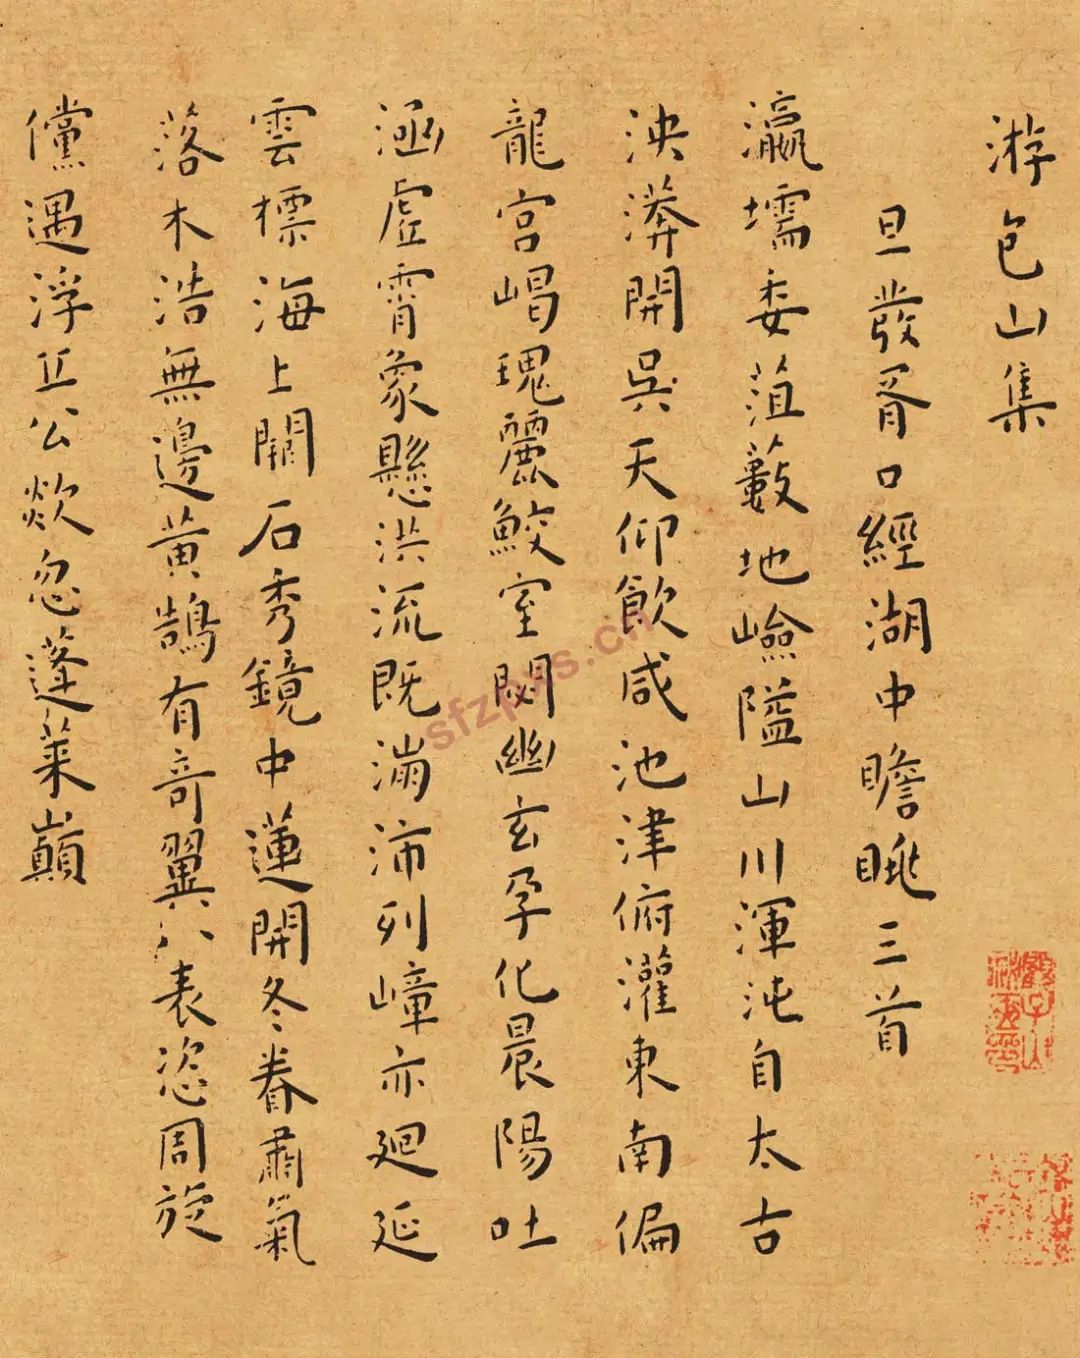 游包山集
旦發胥口經湖中瞻眺三首
瀛壖委菹藪地嶮隘山川渾沌自太古
泱漭開吳天仰歙咸池津俯灌東南偏
龍宮崼瑰麗鮫室閟幽玄孕化晨陽吐
涵虛霄象懸洪流既滿沛列嶂亦廻延
雲標海上闢石秀鏡中蓮開冬眷肅氣
落木浩無邊黃鵠有奇翼八表恣周旋
儻遇浮丘公欻忽蓬萊巔
sfzpws.cn